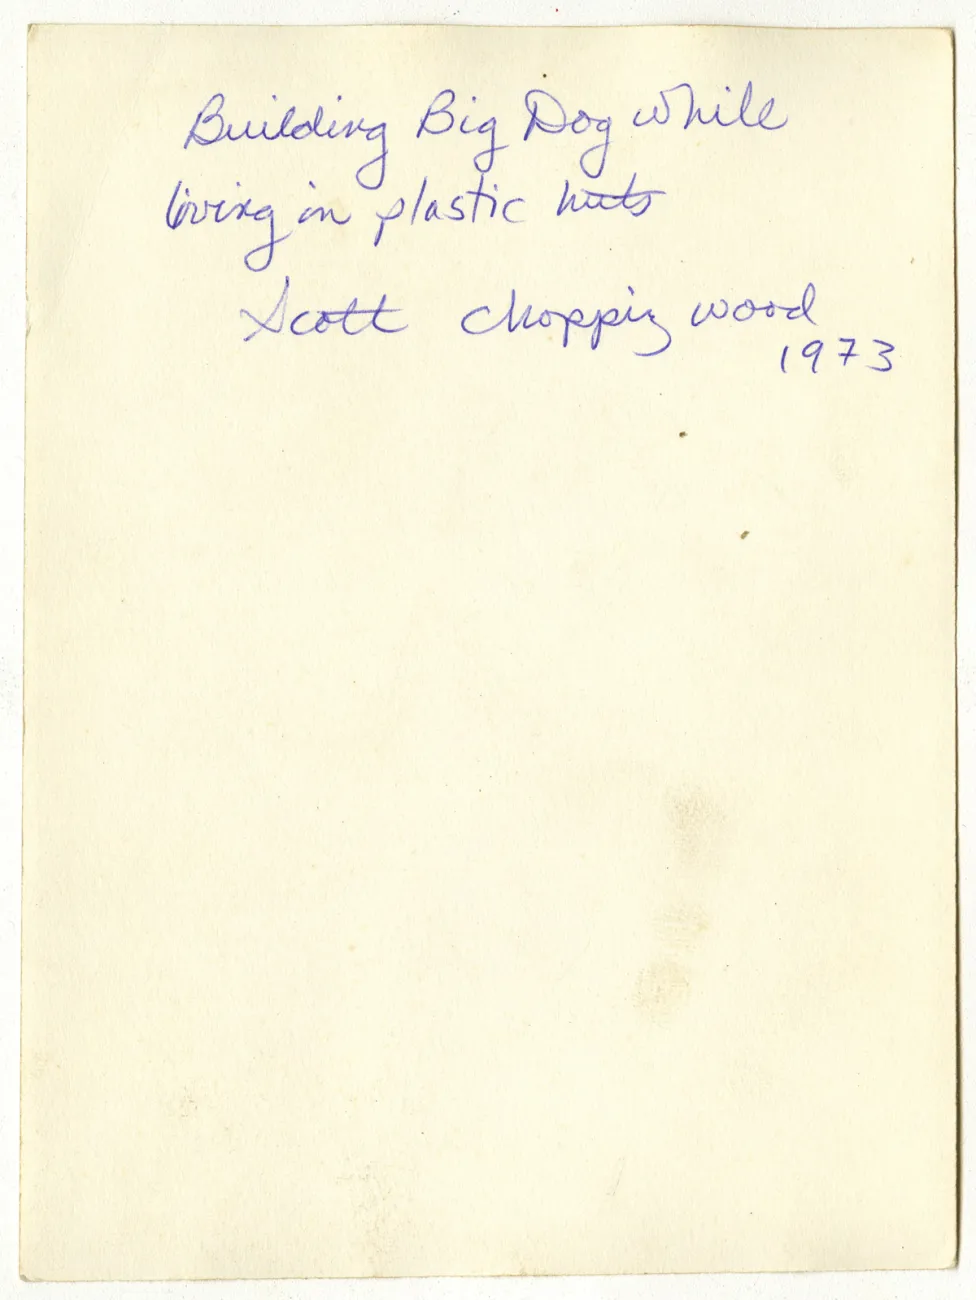 Building Big Dog while
living in plastic huts
Scott chopping wood
1973